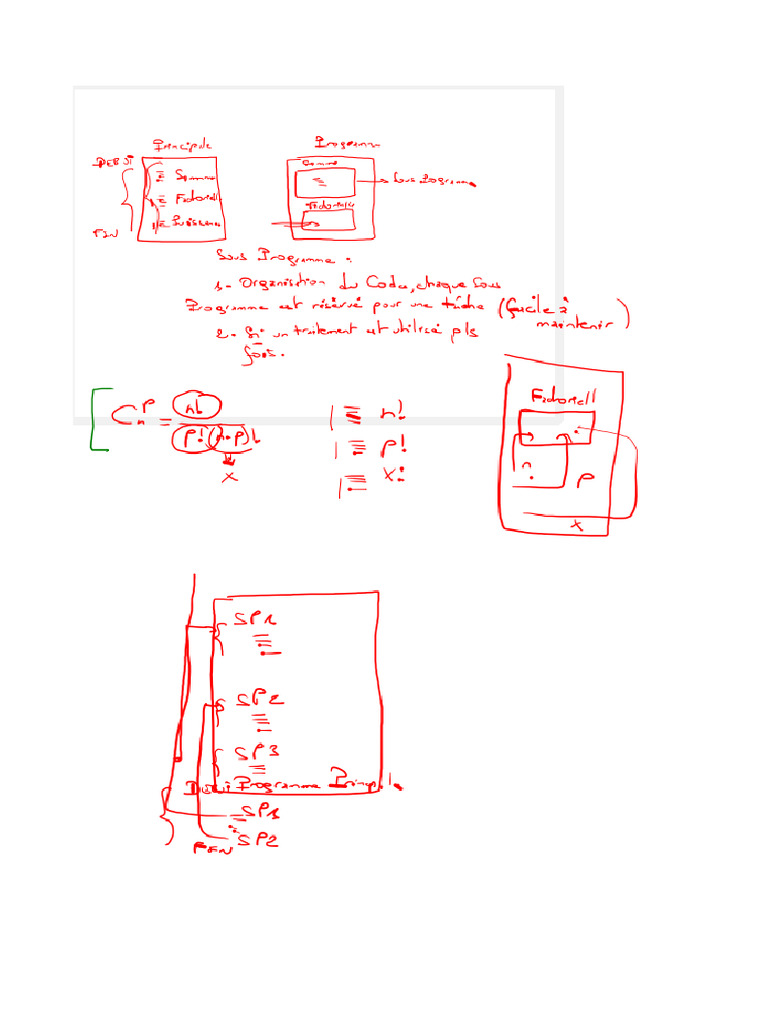 Principale
Programme
DEBUT
Somme
Somme
Sous Programme
Factoriell
Factoriell
Puissance
FIN
Sous Programme :
1- Organisation du Code, chaque sous
Programme est réservé pour une tâche (facile à
maintenir)
2- Si un traitement est utilisé pls
fois.
Factoriell
C n P = n! / p!(n-p)!
n!
p!
x!
x
n
p
x
SP1
SP2
SP3
Début Programme Principal
SP1
SP2
FIN